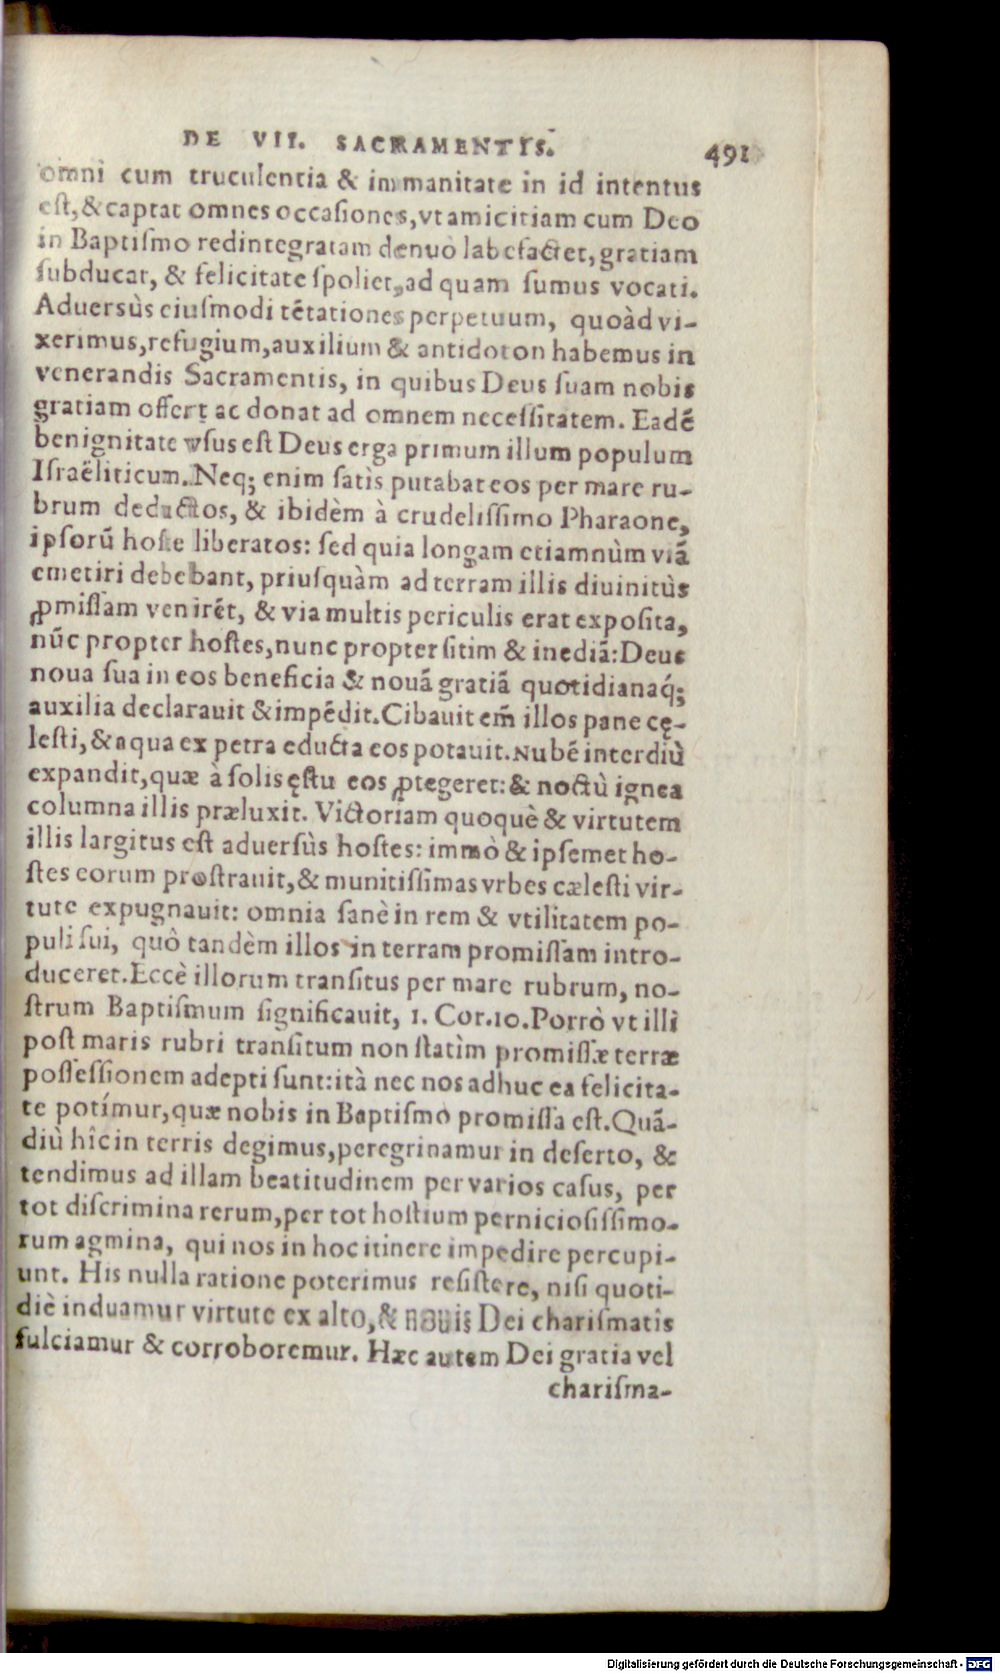 DE VII. SACRAMENTIS. 491
omni cum truculentia & immanitate in id intentus
eſt, & captat omnes occaſiones, vt amicitiam cum Deo
in Baptiſmo redintegratam denuò labefactet, gratiam
ſubducat, & felicitate ſpoliet, ad quam ſumus vocati.
Aduersùs eiuſmodi tẽtationes perpetuum, quoàd vi-
xerimus, refugium, auxilium & antidoton habemus in
venerandis Sacramentis, in quibus Deus ſuam nobis
gratiam offert ac donat ad omnem neceſſitatem. Eadẽ
benignitate vſus eſt Deus erga primum illum populum
Iſraëliticum. Neq; enim ſatìs putabat eos per mare ru-
brum deductos, & ibidèm à crudeliſſimo Pharaone,
ipſorũ hoſte liberatos: ſed quia longam etiamnùm viã
emetiri debebant, priuſquàm ad terram illis diuinitùs
ꝓmiſſam venirẽt, & via multis periculis erat expoſita,
nũc propter hoſtes, nunc propter ſitim & inediã: Deus
noua ſua in eos beneficia & nouã gratiã quotidianaq́;
auxilia declarauit & impẽdit. Cibauit em̃ illos pane cę-
leſti, & aqua ex petra educta eos potauit. Nubẽ interdiù
expandit, quæ à ſolis ęſtu eos ꝓtegeret: & noctù ignea
columna illis præluxit. Victoriam quoquè & virtutem
illis largitus eſt aduerſùs hoſtes: immò & ipſemet ho-
ſtes eorum proſtrauit, & munitiſſimas vrbes cæleſti vir-
tute expugnauit: omnia ſanè in rem & vtilitatem po-
puli ſui, quò tandèm illos in terram promiſſam intro-
duceret. Eccè illorum tranſitus per mare rubrum, no-
ſtrum Baptiſmum ſignificauit, 1. Cor. 10. Porrò vt illi
poſt maris rubri tranſitum non ſtatìm promiſſæ terræ
poſſeſſionem adepti ſunt: ità nec nos adhuc ea felicita-
te potímur, quæ nobis in Baptiſmo promiſſa eſt. Quã-
diù hîc in terris degimus, peregrinamur in deſerto, &
tendimus ad illam beatitudinem per varios caſus, per
tot diſcrimina rerum, per tot hoſtium pernicioſiſſimo-
rum agmina, qui nos in hoc itinere impedire percupi-
unt. His nulla ratione poterimus reſiſtere, niſi quoti-
diè induamur virtute ex alto, & nouis Dei chariſmatis
fulciamur & corroboremur. Hæc autem Dei gratia vel
chariſma-
Digitalisierung gefördert durch die Deutsche Forschungsgemeinschaft - DFG